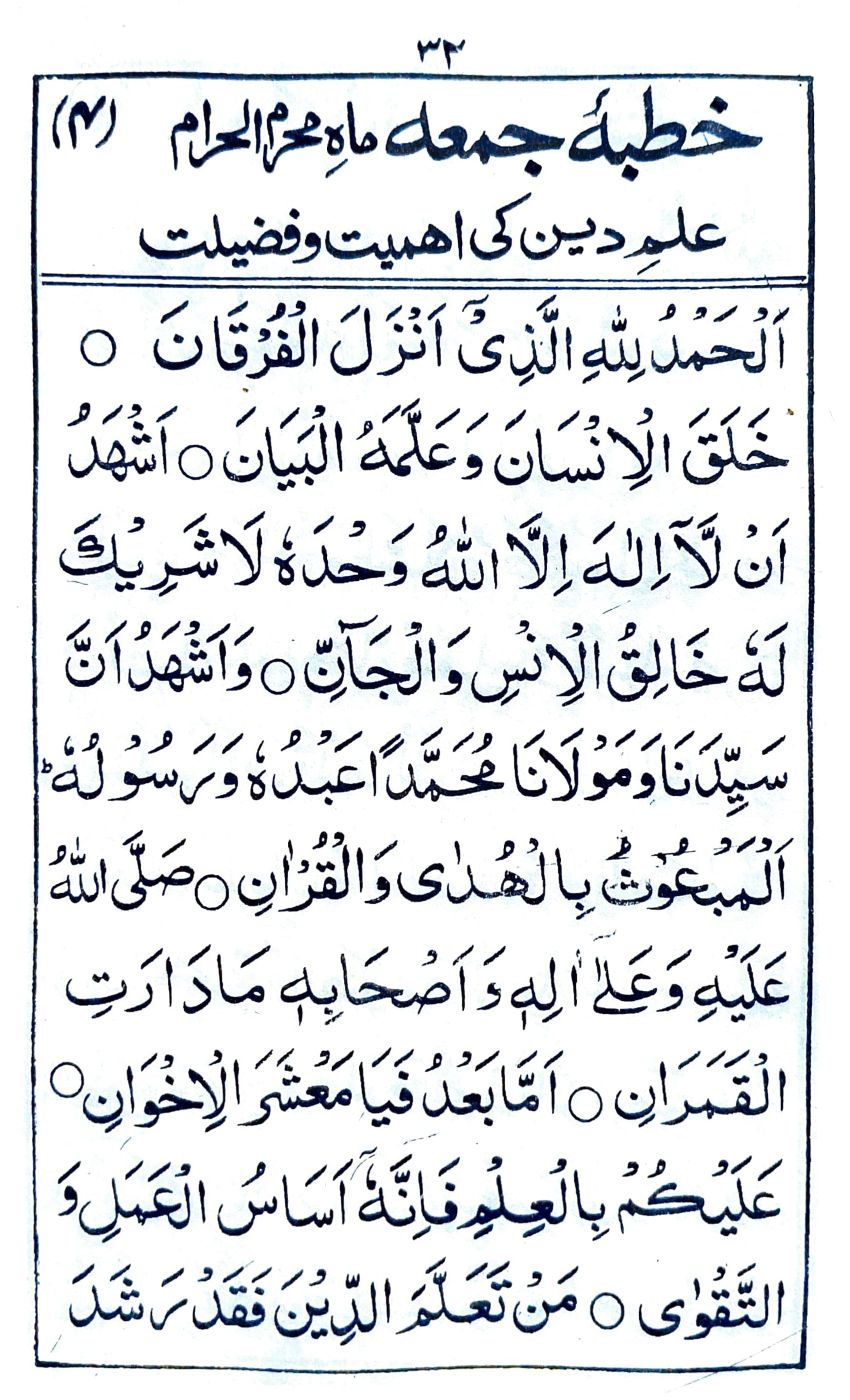 ۳۲
خطبۂ جمعہ ماہِ محرم الحرام (۴)
علمِ دین کی اهمیت و فضیلت
اَلْحَمْدُ لِلّٰهِ الَّذِیْۤ اَنْزَلَ الْفُرْقَانَ ○
خَلَقَ الْاِنْسَانَ وَعَلَّمَهُ الْبَيَانَ ○ اَشْهَدُ
اَنْ لَّاۤ اِلٰهَ اِلَّا اللّٰهُ وَحْدَهٗ لَا شَرِيْكَ
لَهٗ خَالِقُ الْاِنْسِ وَالْجَآنِّ ○ وَاَشْهَدُ اَنَّ
سَيِّدَنَا وَمَوْلَانَا مُحَمَّدًا عَبْدُهٗ وَرَسُوْلُهٗ ؕ
اَلْمَبْعُوْثُ بِالْهُدٰى وَالْقُرْاٰنِ ○ صَلَّى اللّٰهُ
عَلَيْهِ وَعَلٰٓى اٰلِهٖ وَاَصْحَابِهٖ مَا دَارَتِ
الْقَمَرَانِ ○ اَمَّا بَعْدُ فَيَا مَعْشَرَ الْاِخْوَانِ ○
عَلَيْكُمْ بِالْعِلْمِ فَاِنَّهٗۤ اَسَاسُ الْعَمَلِ وَ
التَّقْوٰى ○ مَنْ تَعَلَّمَ الدِّيْنَ فَقَدْ رَشَدَ